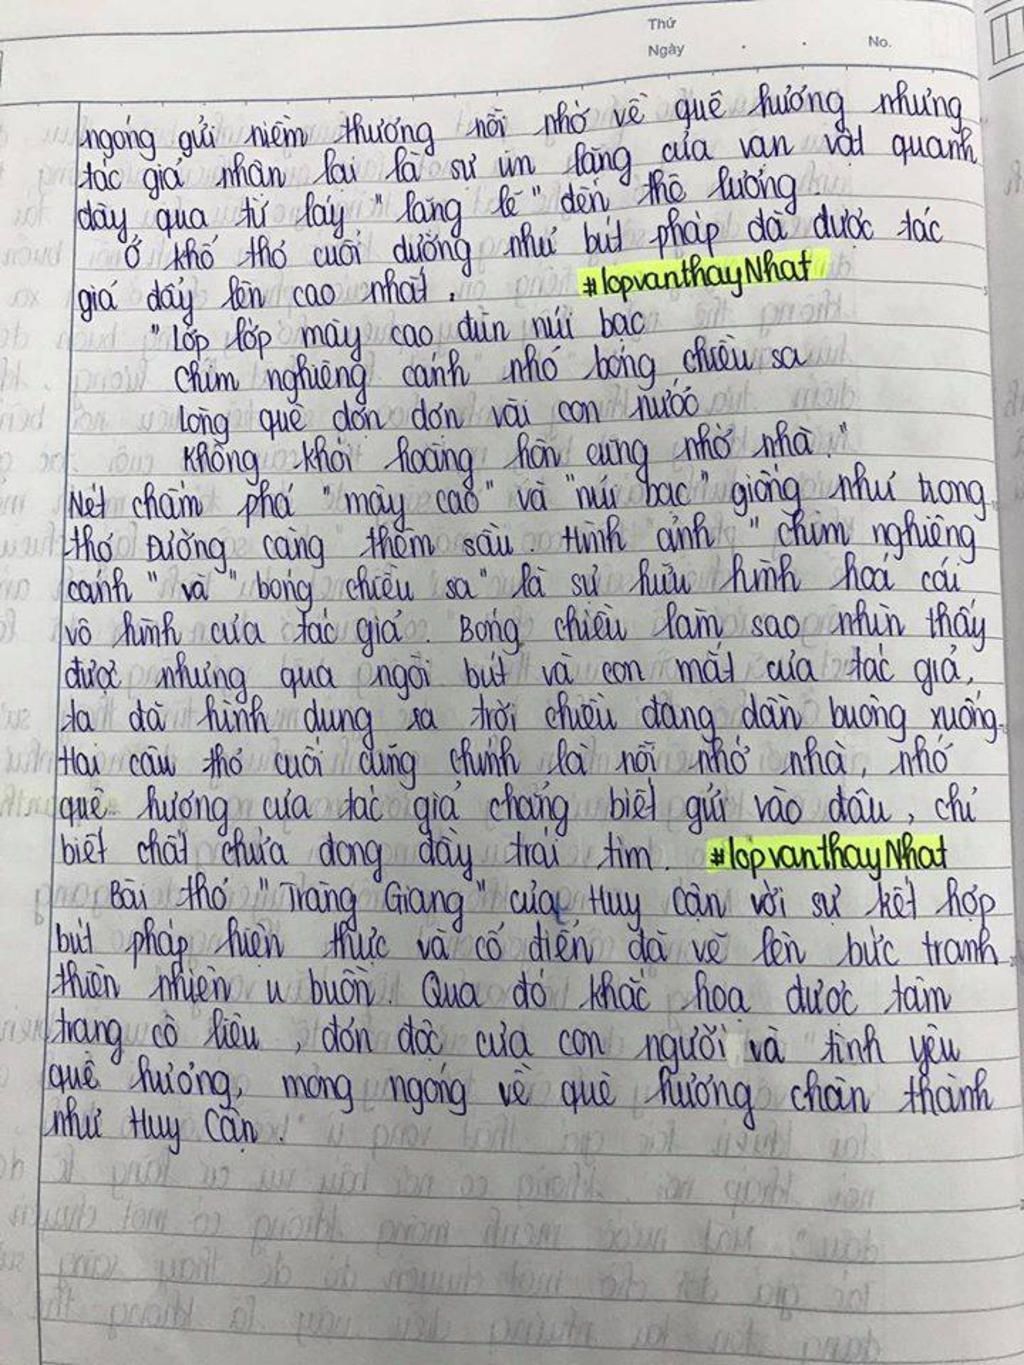 Thứ
Ngày . . No.
ngóng gửi niềm thương nỗi nhớ về quê hương nhưng
tác giả nhận lại là sự im lặng của vạn vật quanh
đây qua từ láy "lặng lẽ" đến thê lương.
Ở khổ thơ cuối dường như bút pháp đã được tác
giả đẩy lên cao nhất. #lopvanthayNhat
"Lớp lớp mây cao đùn núi bạc
Chim nghiêng cánh nhỏ bóng chiều sa
Lòng quê dợn dợn vời con nước
Không khói hoàng hôn cũng nhớ nhà."
Nét chấm phá "mây cao" và "núi bạc" giống như trong
thơ Đường càng thêm sầu. Hình ảnh "chim nghiêng
cánh" và "bóng chiều sa" là sự hữu hình hoá cái
vô hình của tác giả. Bóng chiều làm sao nhìn thấy
được nhưng qua ngòi bút và con mắt của tác giả,
ta đã hình dung ra trời chiều đang dần buông xuống.
Hai câu thơ cuối cũng chính là nỗi nhớ nhà, nhớ
quê hương của tác giả chẳng biết gửi vào đâu, chỉ
biết chất chứa dong đầy trái tim. #lopvanthayNhat
Bài thơ "Tràng Giang" của Huy Cận với sự kết hợp
bút pháp hiện thực và cổ điển đã vẽ lên bức tranh
thiên nhiên u buồn. Qua đó khắc hoạ được tâm
trạng cô liêu, đơn độc của con người và tình yêu
quê hương, mong ngóng về quê hương chân thành
như Huy Cận.